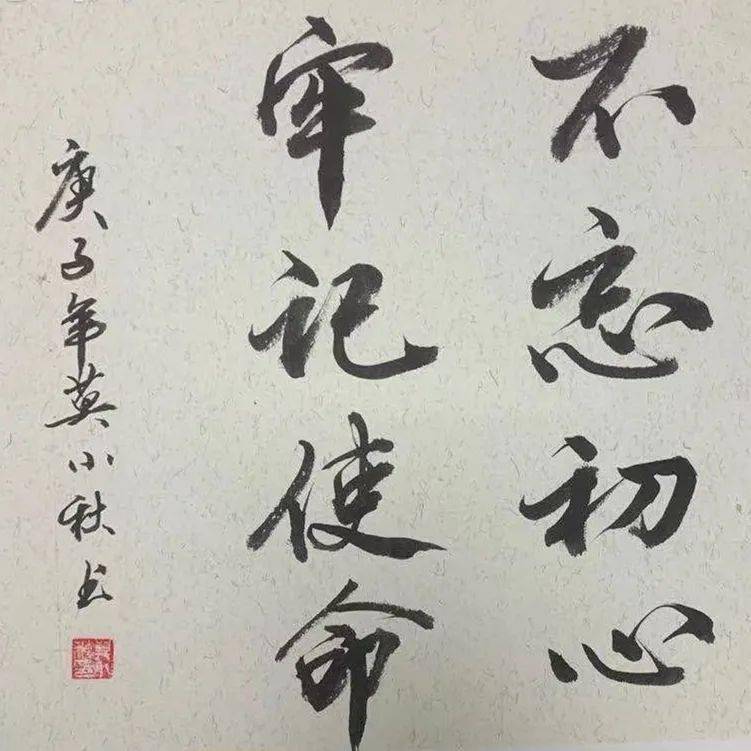 不忘初心
牢记使命
庚子年莫小秋书